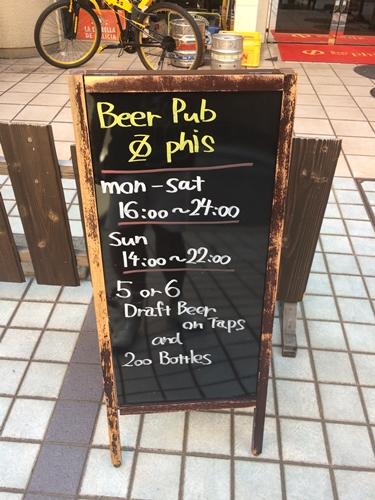 LA
ESTRELLA
DE GALICIA
phis
Beer Pub
Ø phis
mon-sat
16:00~24:00
Sun
14:00~22:00
5 or 6
Draft Beer
on Taps
and
200 Bottles